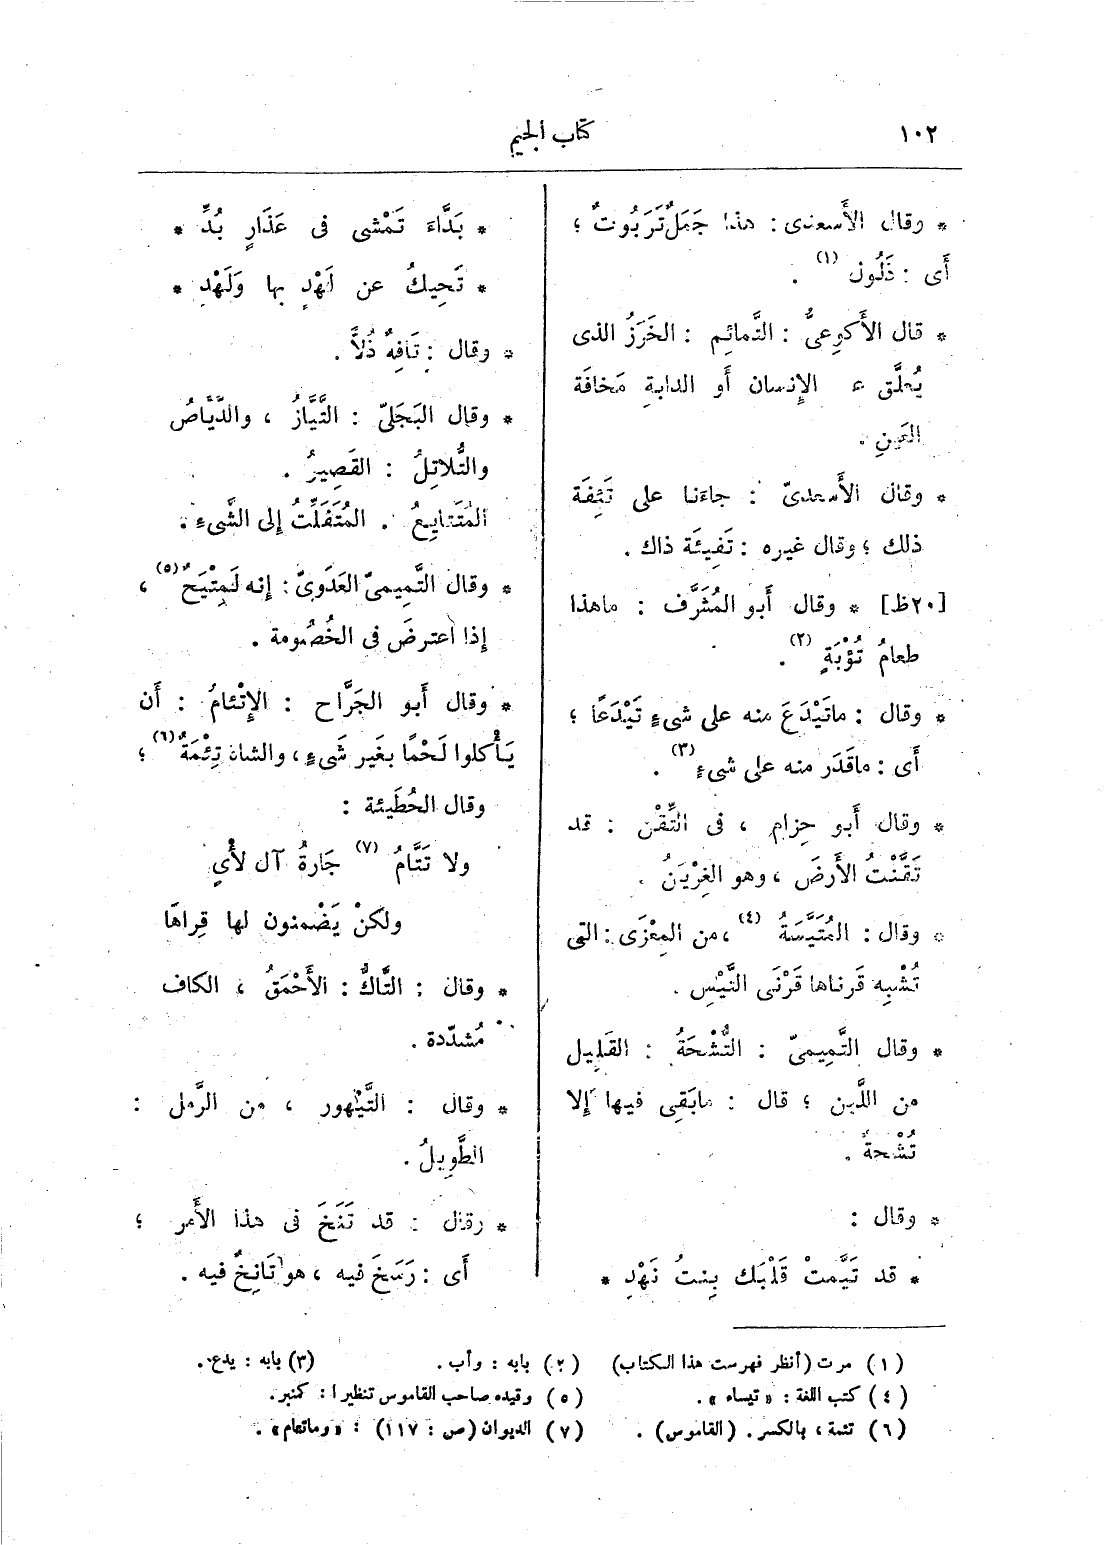 ١٠٢
كتاب الجيم
* وقال الأسعدى : هذا جَمَلٌ تَرَبُوتٌ ؛
أَى : ذَلُول (١) .
* قال الأَكوعىُّ : التَّمائِم : الخَرَزُ الذى
يُعلَّق على الإِنسان أَو الدابةِ مَخافَة
العَين .
* وقال الأَسعدىّ : جاءَنا على تَئِفَة
ذلك ؛ وقال غيره : تَفِيئَة ذاك .
[٢٠ظ] * وقال أَبو المُشَرَّف : ماهذا
طعامُ تُؤْبَةٍ (٢) .
* وقال : ماتَيْدَعَ منه على شىءٍ تَيْدَعًا ؛
أَى : ماقَدَر منه على شىءٍ (٣) .
* وقال أَبو حزام ، فى التِّقْن : قد
تَقَّنْتُ الأَرضَ ، وهو الغِرْيَنُ .
* وقال : المُتَيَّسَةُ (٤) ، من المِعْزَى : التى
تُشْبِه قَرناها قَرْنَى التَّيْسِ .
* وقال التَّمِيمىّ : التُّشْحَةُ : القَلِيل
من اللَّبن ؛ قال : مابَقِى فيها إِلا
تُشْحةٌ .
* وقال :
* قد تَيَّمتْ قَلْبَك بِنتُ نَهْدِ *
* بَدَّاءَ تَمْشى فى عَذَارٍ بُدِّ *
* تَحِيكُ عن لَهْدٍ بها وَلَهْدِ *
* وقال : تَافِهٌ ذُلاًّ .
* وقال البَجَلىّ : التَّيَّازُ ، والدَّيَّاصُ
والتُّلاتِلُ : القَصِيرُ .
المُتَتايِعُ . المُتَفَلِّتُ إلى الشَّىءِ .
* وقال التَّمِيمىّ العَدَوىّ : إنه لَمِتْيَحٌ (٥) ،
إذا اعترضَ فى الخُصُومة .
* وقال أَبو الجَرَّاح : الإِتْئامُ : أَن
يَأْكلوا لَحْمًا بغَير شَىءٍ ، والشاة تِئْمَةٌ (٦) ؛
وقال الحُطَيئة :
ولا تَتَّامُ (٧) جَارةُ آل لأْىٍ
ولكنْ يَضْمنون لها قِراهَا
* وقال : التَّاكُّ : الأَحْمَقُ ، الكاف
مُشدّدة .
* وقال : التَّيْهور ، من الرَّمل :
الطَّوِيلُ .
* وقال : قد تَنَخَ فى هذا الأَمر ؛
أَى : رَسَخَ فيه ، هو تَانِخٌ فيه .
(١) مرت (أنظر فهرست هذا الكتاب) (٢) بابه : وأب . (٣) بابه : يدع .
(٤) كتب اللغة : « تيساء » . (٥) وقيده صاحب القاموس تنظيرا : كمنبر .
(٦) تئمة ، بالكسر . (القاموس) . (٧) الديوان (ص : ١١٧) : « وماتتام » .